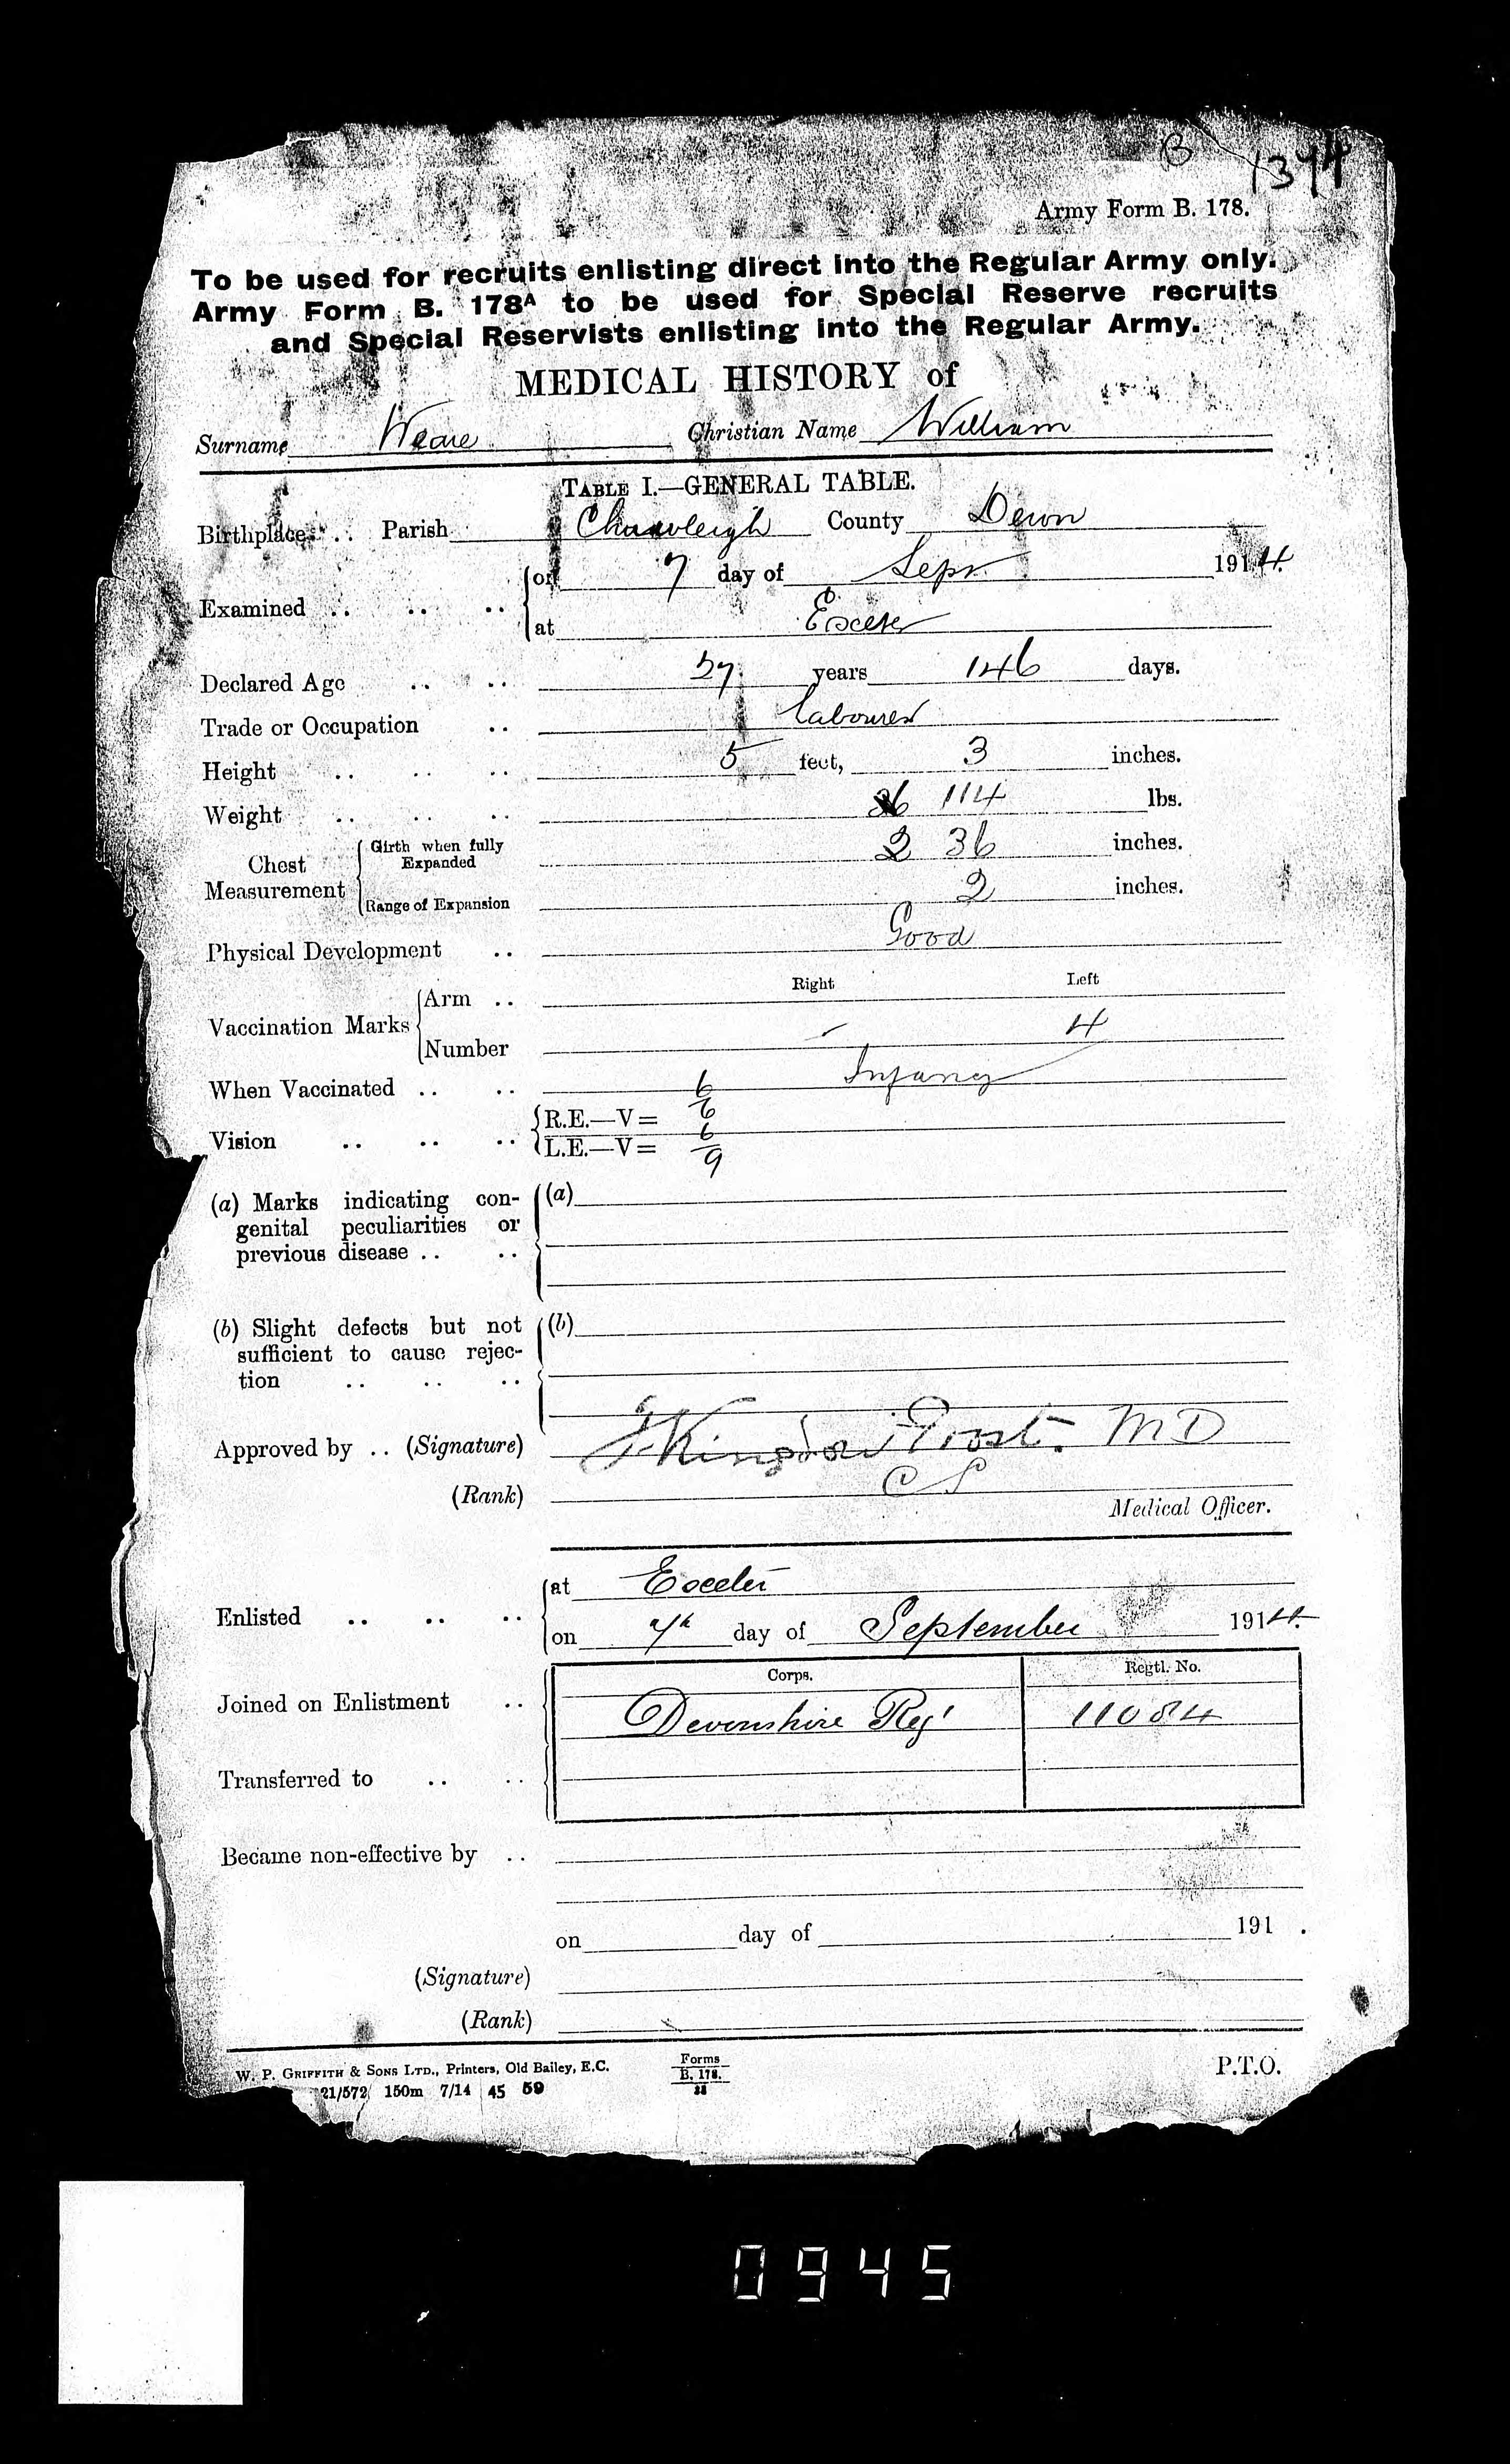 B 1394
Army Form B. 178.
To be used for recruits enlisting direct into the Regular Army only.
Army Form B. 178A to be used for Special Reserve recruits
and Special Reservists enlisting into the Regular Army.
MEDICAL HISTORY of
Surname Weare Christian Name William
TABLE I.—GENERAL TABLE.
Birthplace .. Parish Chawleigh County Devon
Examined .. .. .. on 7 day of Sept 1914.
at Exeter
Declared Age .. .. 37 years 146 days.
Trade or Occupation .. Labourer
Height .. .. .. 5 feet, 3 inches.
Weight .. .. .. 114 lbs.
Chest Measurement Girth when fully Expanded 36 inches.
Range of Expansion 2 inches.
Physical Development .. Good
Right Left
Vaccination Marks Arm ..
Number - 4
When Vaccinated .. .. Infancy
Vision .. .. .. R.E.—V= 6/6
L.E.—V= 6/9
(a) Marks indicating con- (a)
genital peculiarities or
previous disease .. ..
(b) Slight defects but not (b)
sufficient to cause rejec-
tion .. .. ..
Approved by .. (Signature) Kingdon Frost. MD
(Rank) C S
Medical Officer.
Enlisted .. .. .. at Exeter
on 7th day of September 1914.
Corps. Regtl. No.
Joined on Enlistment .. Devonshire Regt 11084
Transferred to .. ..
Became non-effective by ..
on day of 191 .
(Signature)
(Rank)
W. P. GRIFFITH & SONS LTD., Printers, Old Bailey, E.C. Forms B. 178. P.T.O.
21/572 150m 7/14 45 59
0945